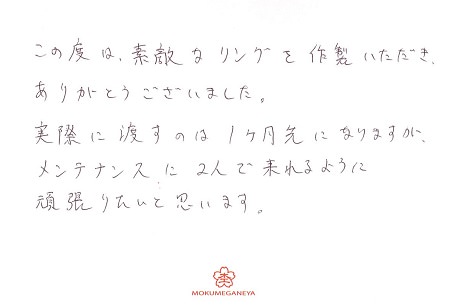 この度は、素敵なリングを作製いただき、
ありがとうございました。
実際に渡すのは1ヶ月先になりますが、
メンテナンスに2人で来れるように
頑張りたいと思います。
MOKUMEGANEYA